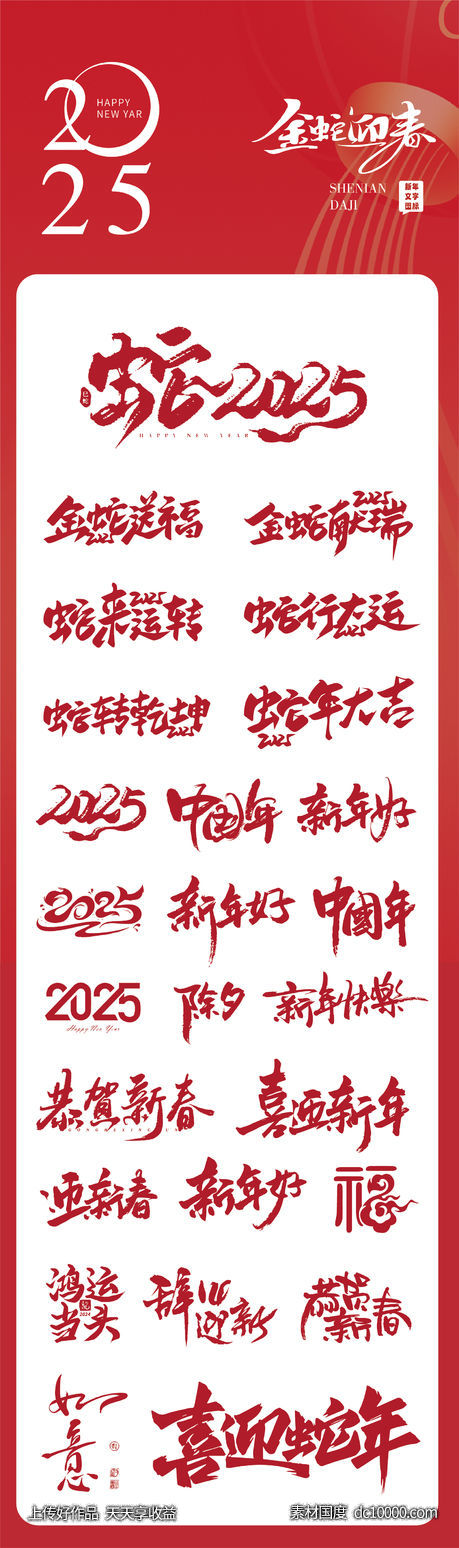 2025
HAPPY
NEW YAR
金蛇迎春
SHENIAN
DAJI
新年
文字
图标
蛇2025
HAPPY NEW YEAR
金蛇送福
2025
金蛇献瑞
2025
蛇来运转
2025
蛇行大运
2025
蛇转乾坤
2025
蛇年大吉
2025
2025
中国年
新年好
2025
新年好
中國年
2025
Happy New Year
除夕
新年快樂
恭賀新春
喜迎新年
迎新春
新年好
福
鸿运
当头
2024
辞旧迎新
恭贺
新春
如意
喜迎蛇年
上传好作品 天天享收益
素材国度 dc10000.com